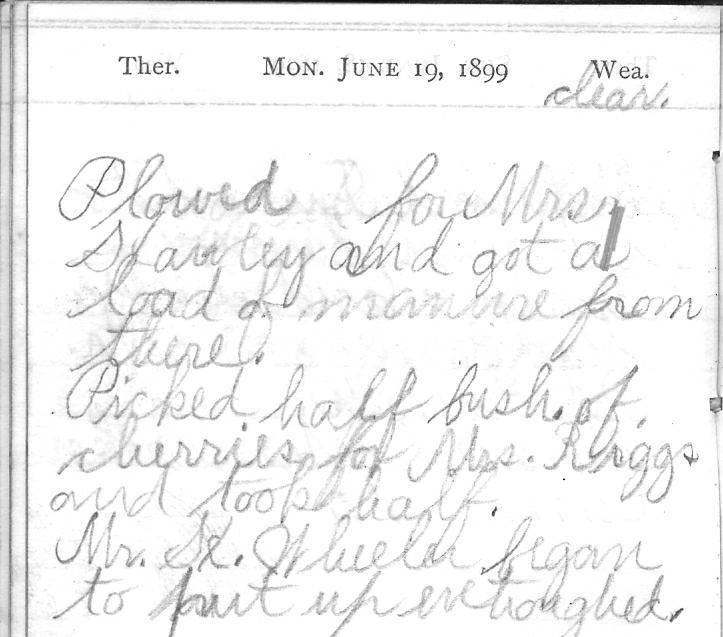 Ther. MON. JUNE 19, 1899 Wea.
clear.
Plowed for Mrs.
Stanley and got a
load of manure from
there.
Picked half bush. of
cherries for Mrs. Riggs
and took half.
Mr. St. Wheeler began
to put up evetroughed.